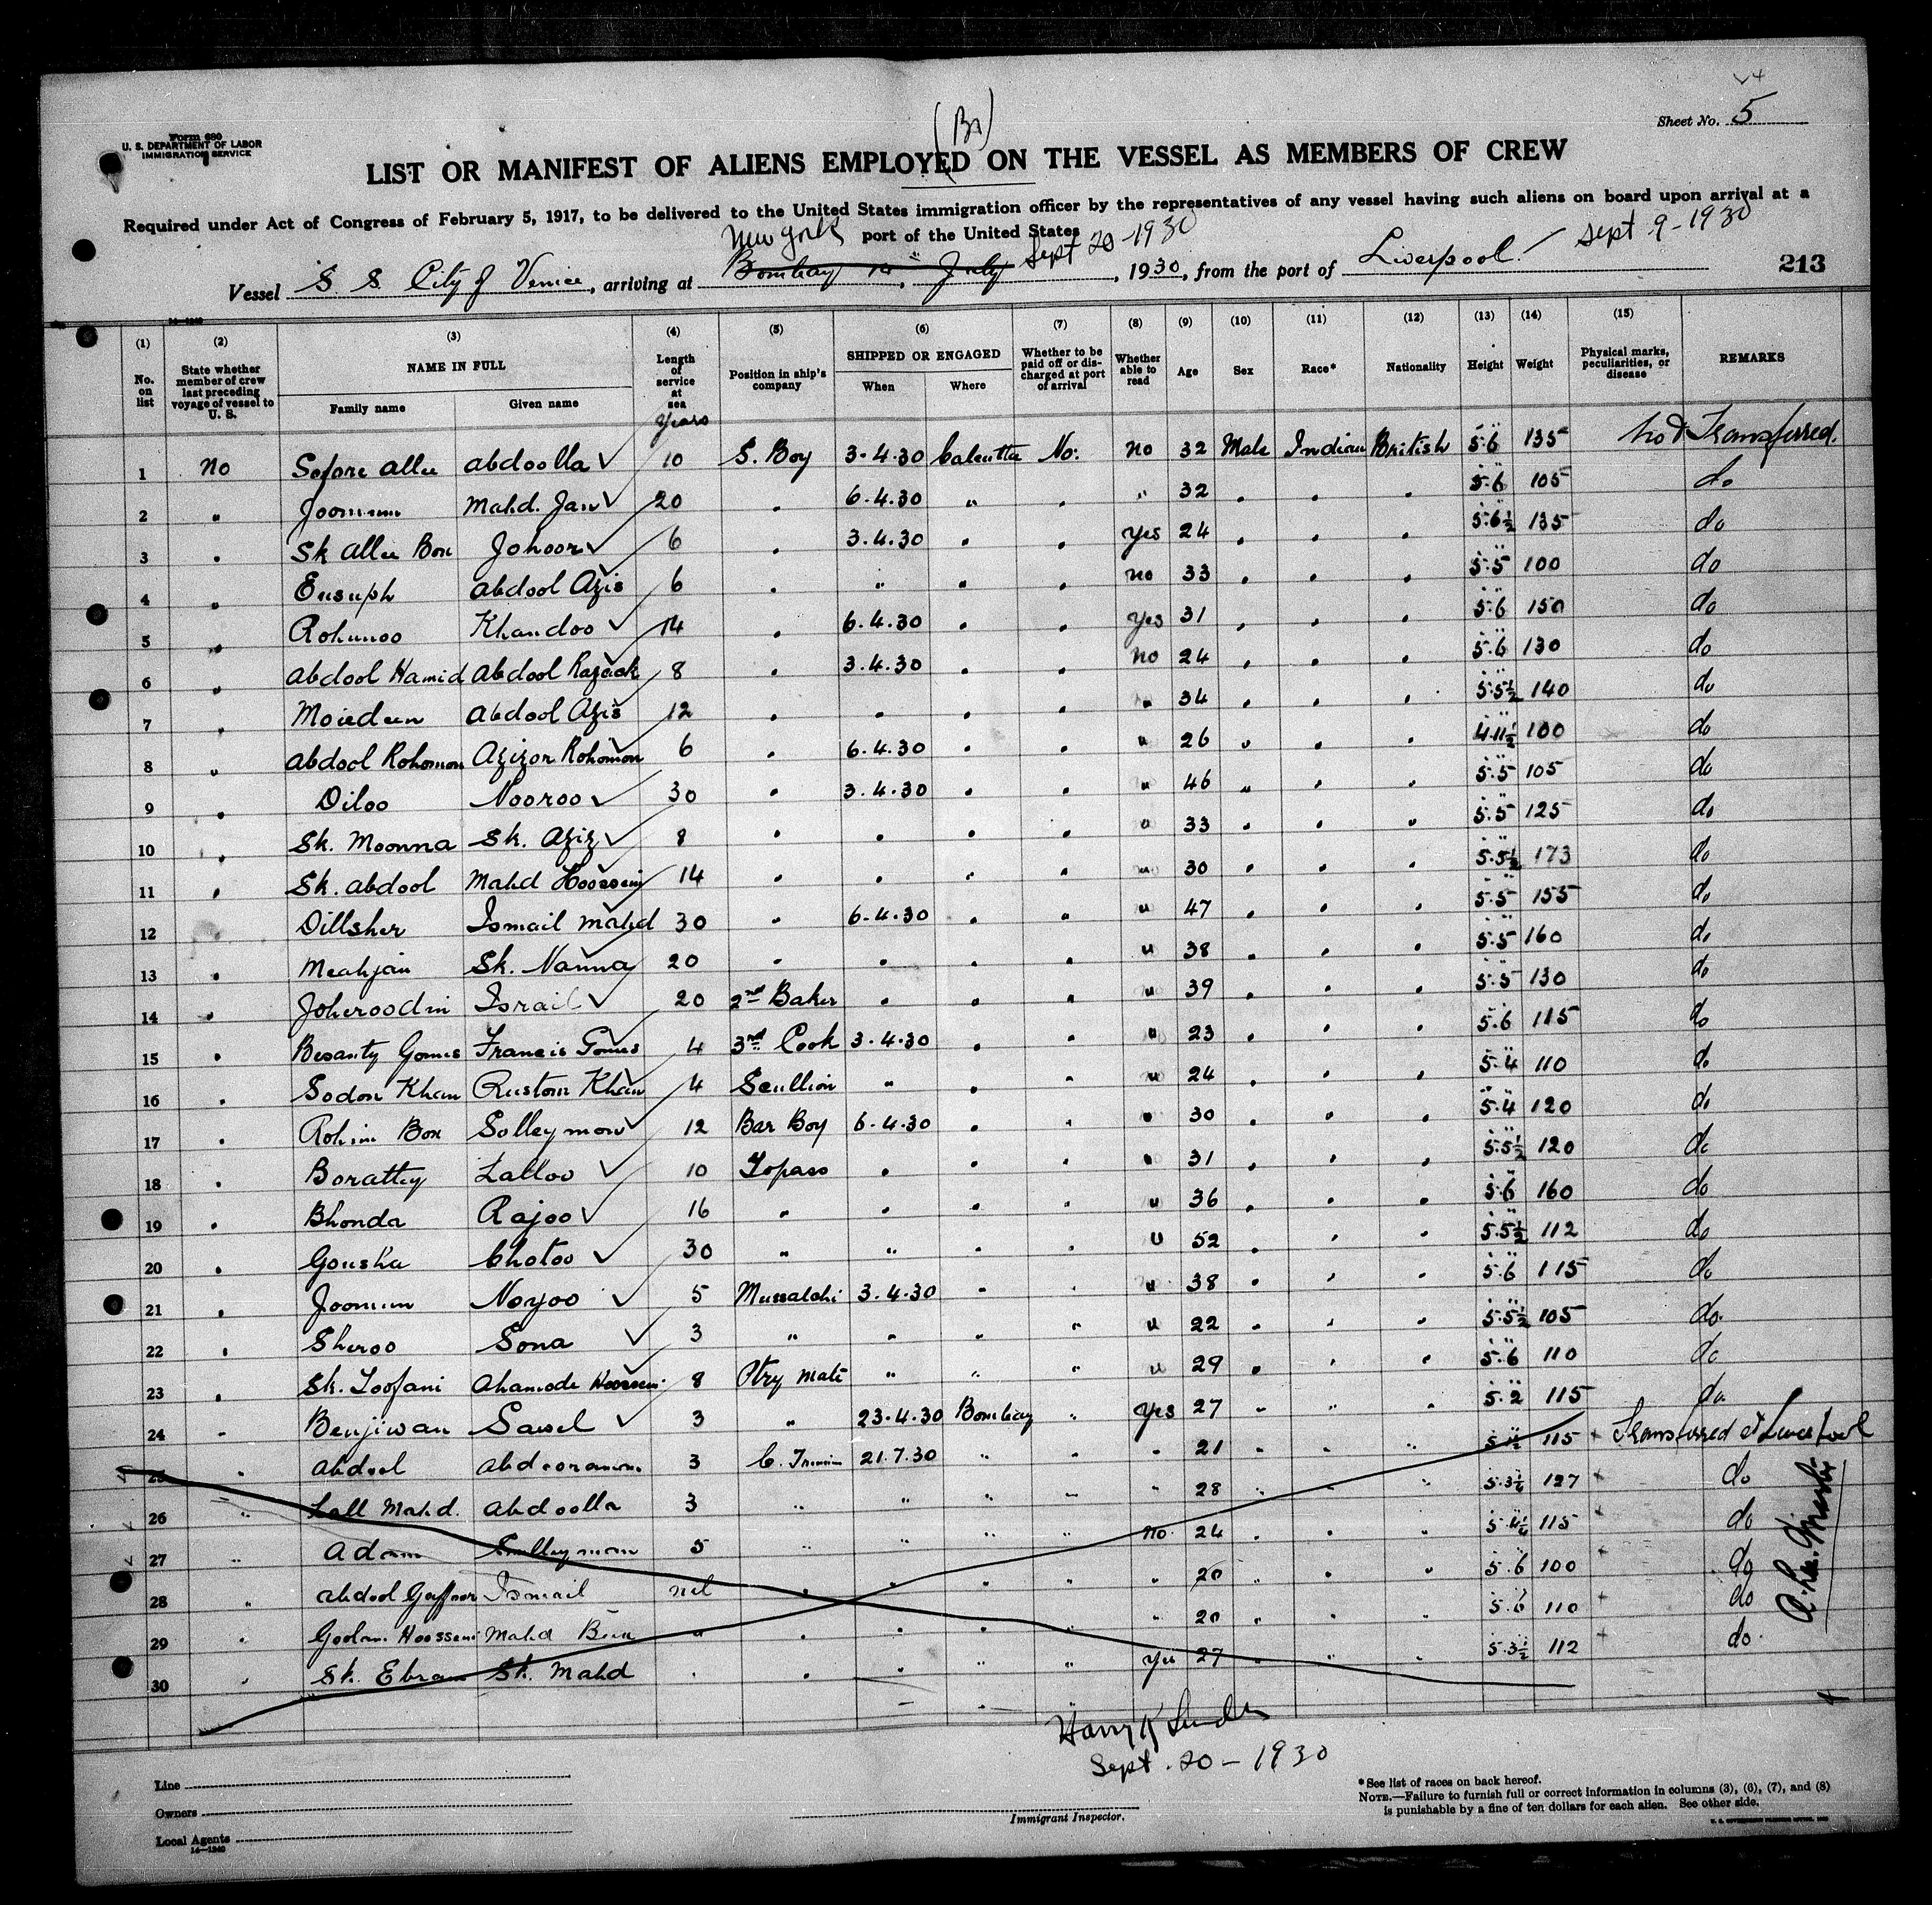 4
Form 680
U. S. DEPARTMENT OF LABOR
IMMIGRATION SERVICE
(Br)
Sheet No. 5
LIST OR MANIFEST OF ALIENS EMPLOYED ON THE VESSEL AS MEMBERS OF CREW
Required under Act of Congress of February 5, 1917, to be delivered to the United States immigration officer by the representatives of any vessel having such aliens on board upon arrival at a
port of the United States
New York Sept 20-1930 Sept 9-1930
Vessel S. S. City of Venice, arriving at Bombay July, 1930, from the port of Liverpool 213
14—1240
(1) (2) (3) (4) (5) (6) (7) (8) (9) (10) (11) (12) (13) (14) (15)
No. on list State whether member of crew last preceding voyage of vessel to U. S. NAME IN FULL Family name Given name Length of service at sea Position in ship's company SHIPPED OR ENGAGED When Where Whether to be paid off or discharged at port of arrival Whether able to read Age Sex Race* Nationality Height Weight Physical marks, peculiarities, or disease REMARKS
years
1 no Sofore Allee Abdoolla 10 S. Boy 3.4.30 Calcutta No. no 32 Male Indian British 5.6 135 Transferred.
2 " Joomun Mahd. Jan 20 . 6.4.30 " . " 32 . . . 5.6 105 do
3 . Sk Allee Box Johoor 6 . 3.4.30 . . yes 24 . . . 5.6½ 135 do
4 " Eusuph Abdool Azis 6 . " " . no 33 . . . 5.5 100 do
5 " Rohunoo Khandoo 14 . 6.4.30 . . yes 31 . . . 5.6 150 do
6 " Abdool Hamid Abdool Razack 8 . 3.4.30 . . no 24 . . . 5.6 130 do
7 . Moiedeen Abdool Azis 12 . . . . " 34 . . . 5.5½ 140 do
8 " Abdool Rohomon Azizor Rohomon 6 . 6.4.30 . . " 26 . . . 4.11½ 100 do
9 . Diloo Nooroo 30 . 3.4.30 . . " 46 " . . 5.5 105 do
10 . Sk. Moonna Sk. Aziz 8 . . . . " 33 . . . 5.5 125 do
11 . Sk. Abdool Mahd Hoossein 14 . . . . " 30 . . . 5.5½ 173 do
12 . Dillsher Ismail Mahd 30 . 6.4.30 . " " 47 . . . 5.5 155 do
13 . Meahjan Sk. Nanna 20 . . . . " 38 . . . 5.5 160 do
14 . Joheroodin Israil 20 2nd Baker . . . " 39 . . . 5.5 130 do
15 . Besanty Gomes Francis Gomes 4 3rd Cook 3.4.30 . . " 23 . . . 5.6 115 do
16 . Sodon Khan Rustom Khan 4 Scullion " . . " 24 . . . 5.4 110 do
17 . Rohim Box Solleyman 12 Bar Boy 6.4.30 . . . 30 . . . 5.4 120 do
18 . Borattey Lalloo 10 Topass . . . . 31 . . . 5.5½ 120 do
19 . Bhonda Rajoo 16 . . . . " 36 . . . 5.6 160 do
20 . Gousha Chotoo 30 " " . . " 52 . . . 5.5½ 112 do
21 . Joomun Noyoo 5 Mussalchi 3.4.30 . . " 38 . . . 5.6 115 do
22 . Sheroo Sona 3 " . . " " 22 . . . 5.5½ 105 do.
23 . Sk. Toofani Ahamode Hoossein 8 Ptry Mate " " " " 29 . . . 5.6 110 do
24 . Benjiwan Sawel 3 " 23.4.30 Bombay " yes 27 . . . 5.2 115 do
25 . Abdool 3 21.7.30 " " " 21 . . . 115 Transferred at Liverpool
26 " Lall Mahd. Abdoolla 3 " " " " " 28 . . " 5.3½ 127 do
27 " Adam Sulleyman 5 " " " " no. 24 . . " 115 do
28 " Abdool Gaffoor Ismail nil . . . . " 20 . . . 5.6 100 do
29 . Goolam Hoossein Mahd " . . . " " 20 . . . 5.6 110 do
30 . Sk. Sk. Mahd . . . " " yes 27 . . . 5.3½ 112 do
Sept. 20-1930
Line
Owners
Local Agents
14—1240
Immigrant Inspector.
*See list of races on back hereof.
NOTE.—Failure to furnish full or correct information in columns (3), (6), (7), and (8)
is punishable by a fine of ten dollars for each alien. See other side.